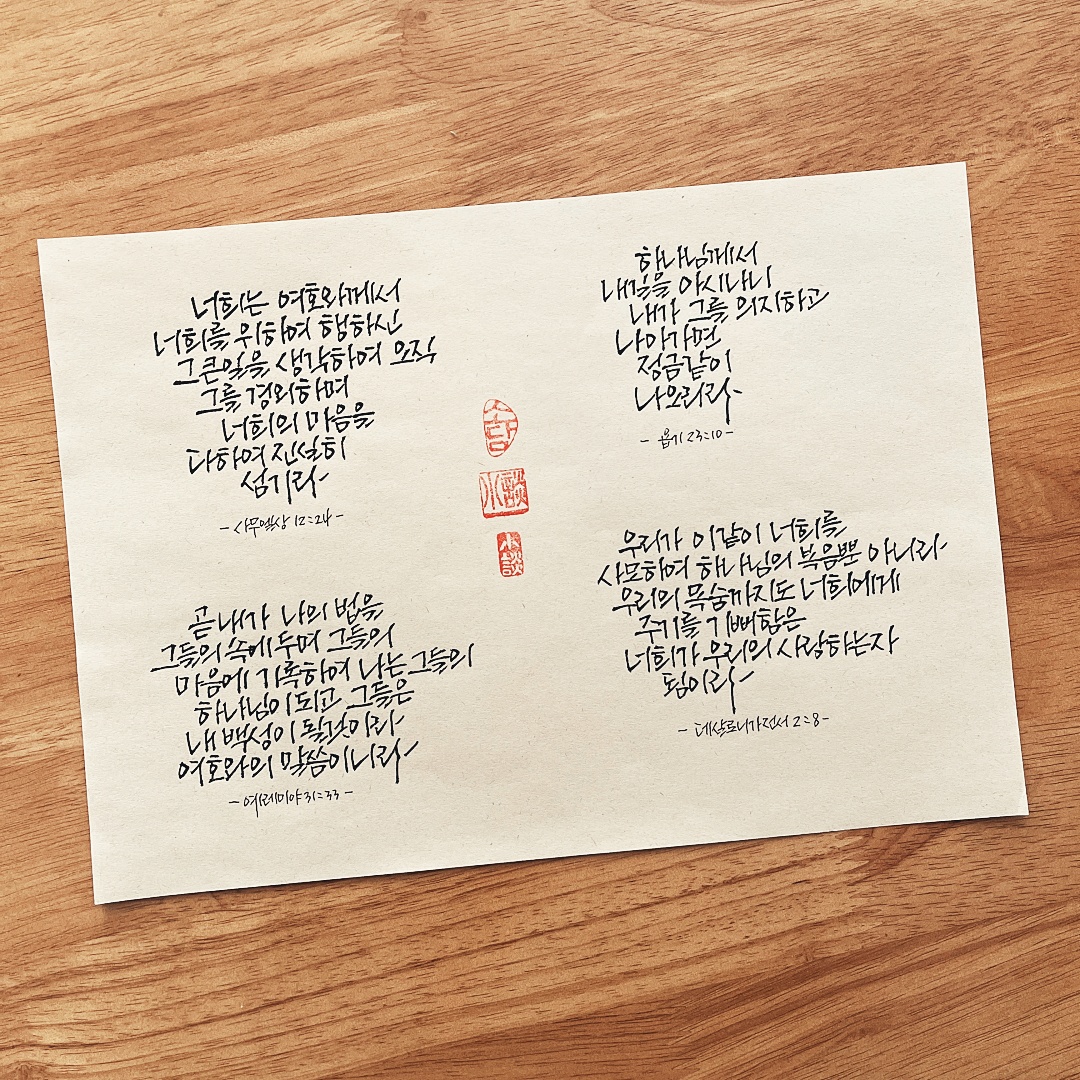 너희는 여호와께서
너희를 위하여 행하신
그 큰일을 생각하여 오직
그를 경외하며
너희의 마음을
다하여 진실히
섬기라
- 사무엘상 12:24 -
곧 내가 나의 법을
그들의 속에 두며 그들의
마음에 기록하여 나는 그들의
하나님이 되고 그들은
내 백성이 될것이라
여호와의 말씀이니라
- 예레미야 31:33 -
水談
水談
하나님께서
내길을 아시나니
내가 그를 의지하고
나아가면
정금같이
나오리라
- 욥기 23:10 -
우리가 이같이 너희를
사모하여 하나님의 복음뿐 아니라
우리의 목숨까지도 너희에게
주기를 기뻐함은
너희가 우리의 사랑하는자
됨이라
- 데살로니가전서 2:8 -